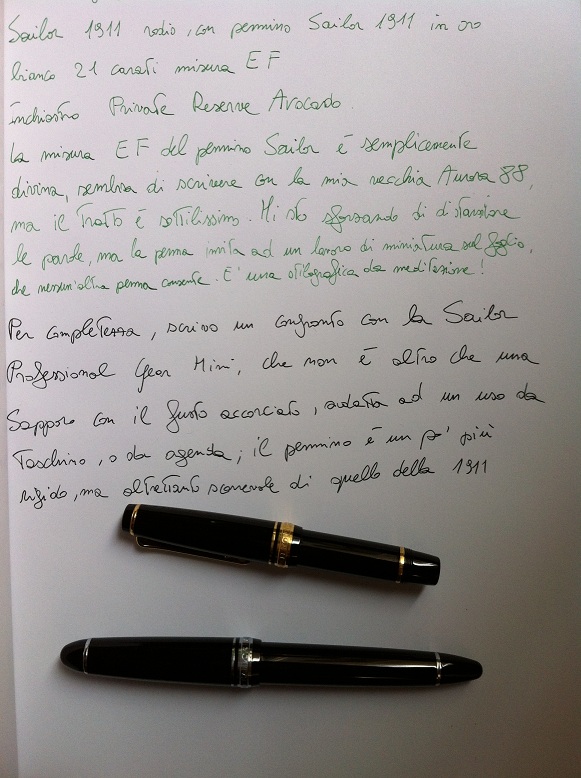 Sailor 1911 rodio, con pennino Sailor 1911 in oro
bianco 21 carati misura EF
inchiostro Private Reserve Avocado.
La misura EF del pennino Sailor è semplicemente
divina, sembra di scrivere con la mia vecchia Aurora 88,
ma il tratto è sottilissimo. Mi sto sforzando di distanziare
le parole, ma la penna invita ad un lavoro di miniatura sul foglio,
che nessun'altra penna consente. E' una stilografica da meditazione!
Per completezza, scrivo un confronto con la Sailor
Professional Gear Mini, che non è altro che una
Sapporo con il fusto accorciato, adatta ad un uso da
taschino, o da agenda; il pennino è un po' più
rigido, ma altrettanto scorrevole di quello della 1911